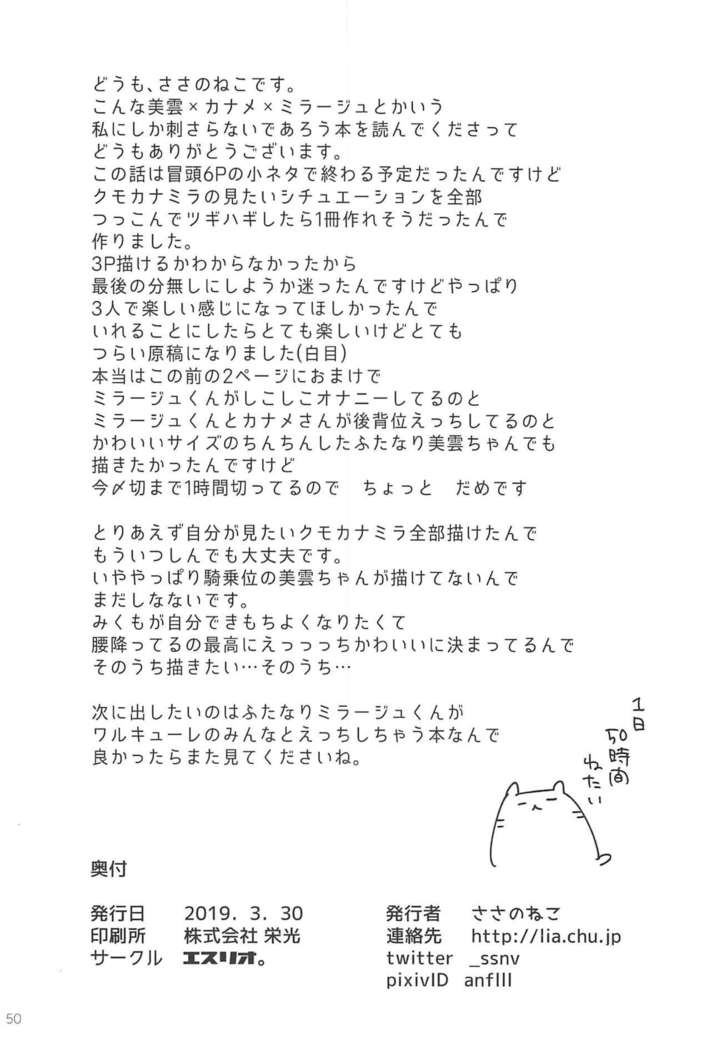 どうも、ささのねこです。
こんな美雲×カナメ×ミラージュとかいう
私にしか刺さらないであろう本を読んでくださって
どうもありがとうございます。
この話は冒頭6Pの小ネタで終わる予定だったんですけど
クモカナミラの見たいシチュエーションを全部
つっこんでツギハギしたら1冊作れそうだったんで
作りました。
3P描けるかわからなかったから
最後の分無しにしようか迷ったんですけどやっぱり
3人で楽しい感じになってほしかったんで
いれることにしたらとても楽しいけどとても
つらい原稿になりました(白目)
本当はこの前の2ページにおまけで
ミラージュくんがしこしこオナニーしてるのと
ミラージュくんとカナメさんが後背位えっちしてるのと
かわいいサイズのちんちんしたふたなり美雲ちゃんでも
描きたかったんですけど
今〆切まで1時間切ってるので　ちょっと　だめです
とりあえず自分が見たいクモカナミラ全部描けたんで
もういつしんでも大丈夫です。
いややっぱり騎乗位の美雲ちゃんが描けてないんで
まだしなないです。
みくもが自分できもちよくなりたくて
腰降ってるの最高にえっっっちかわいいに決まってるんで
そのうち描きたい…そのうち…
次に出したいのはふたなりミラージュくんが
ワルキューレのみんなとえっちしちゃう本なんで
良かったらまた見てくださいね。
1日
50時間
ねたい
奥付
発行日 2019. 3. 30
印刷所 株式会社 栄光
サークル エスリオ。
発行者 ささのねこ
連絡先 http://lia.chu.jp
twitter _ssnv
pixivID anflll
50